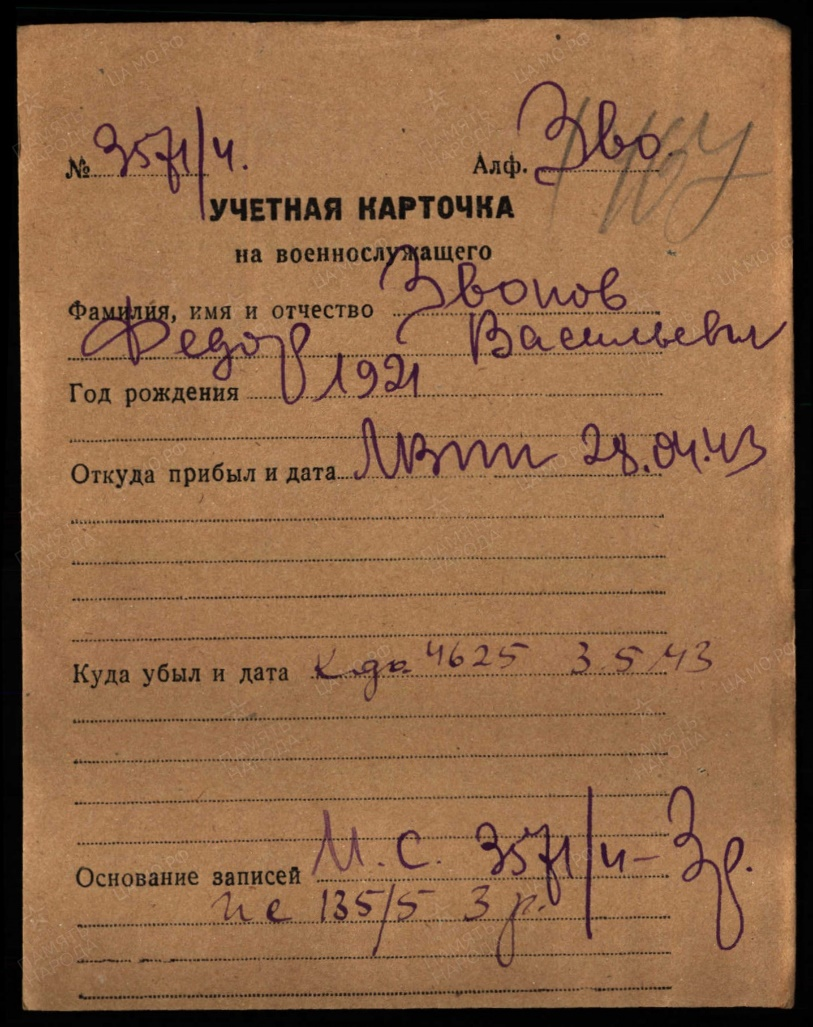 № 3571/ч. Алф. Зво
УЧЕТНАЯ КАРТОЧКА
на военнослужащего
Фамилия, имя и отчество Звонов
Федор Васильевич
Год рождения 1921
Откуда прибыл и дата 28.04.43
Куда убыл и дата 4625 3 5 43
Основание записей И. С. 3571/ч-3р.
ис 135/5 3 р.